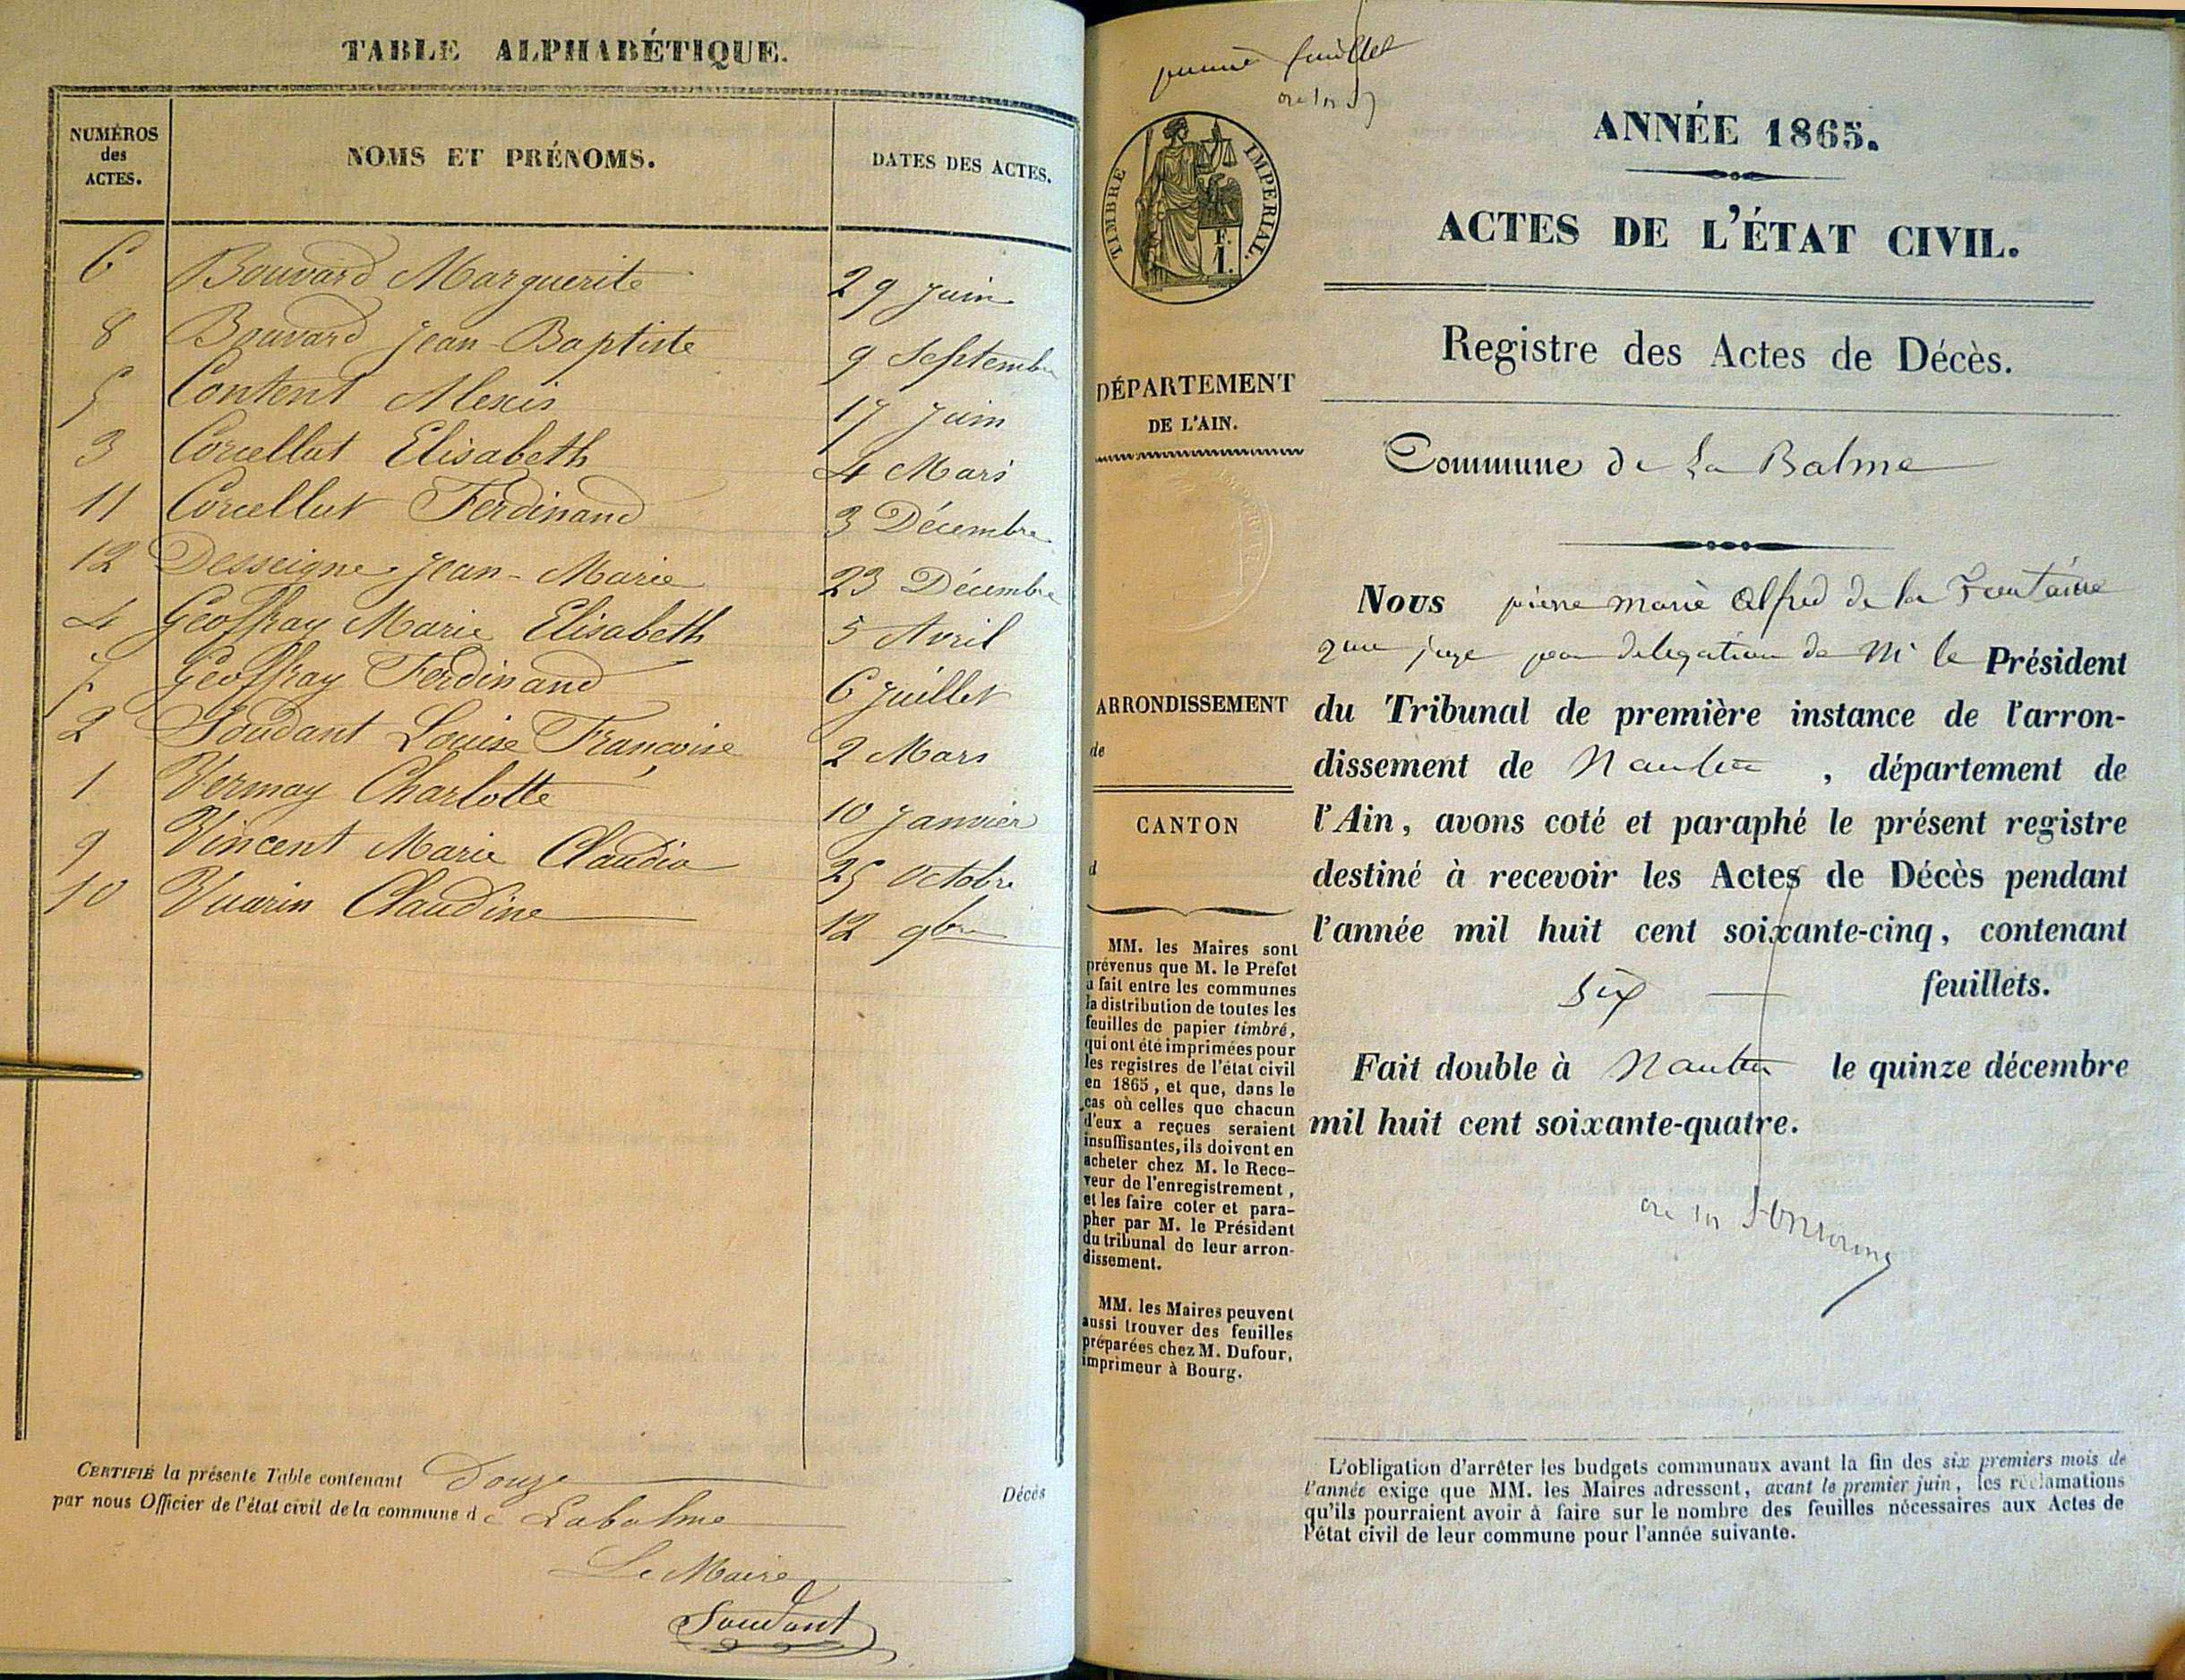 TABLE ALPHABÉTIQUE.
NUMÉROS
des
ACTES.
NOMS ET PRÉNOMS.
DATES DES ACTES.
6 Bouvard Marguerite 29 Juin
8 Bouvard Jean-Baptiste 9 Septembre
5 Content Alexis 17 Juin
3 Corcellut Elisabeth 4 Mars
11 Corcellut Ferdinand 3 Décembre
12 Desseigne Jean-Marie 23 Décembre
4 Geoffray Marie Elisabeth 5 Avril
7 Geoffray Ferdinand 6 Juillet
2 Soudant Louise Françoise 2 Mars
1 Vermay Charlotte 10 Janvier
9 Vincent Marie Claudia 25 Octobre
10 Vuarin Claudine 12 9bre
CERTIFIÉ la présente Table contenant Douze Décès
par nous Officier de l'état civil de la commune de Labalme
Le Maire
Soudant
premier feuillet
TIMBRE IMPERIAL.
F.
1.
DÉPARTEMENT
DE L'AIN.
ARRONDISSEMENT
de
CANTON
d
MM. les Maires sont
prévenus que M. le Préfet
a fait entre les communes
la distribution de toutes les
feuilles de papier timbré,
qui ont été imprimées pour
les registres de l'état civil
en 1865, et que, dans le
cas où celles que chacun
d'eux a reçues seraient
insuffisantes, ils doivent en
acheter chez M. le Rece-
veur de l'enregistrement,
et les faire coter et para-
pher par M. le Président
du tribunal de leur arron-
dissement.
MM. les Maires peuvent
aussi trouver des feuilles
préparées chez M. Dufour,
imprimeur à Bourg.
ANNÉE 1865.
ACTES DE L'ÉTAT CIVIL.
Registre des Actes de Décès.
Commune de La Balme
Nous pierre marie Alfred de la
juge par delegation de Mr le Président
du Tribunal de première instance de l'arron-
dissement de Nantua, département de
l'Ain, avons coté et paraphé le présent registre
destiné à recevoir les Actes de Décès pendant
l'année mil huit cent soixante-cinq, contenant
six feuillets.
Fait double à Nantua le quinze décembre
mil huit cent soixante-quatre.
L'obligation d'arrêter les budgets communaux avant la fin des six premiers mois de
l'année exige que MM. les Maires adressent, avant le premier juin, les réclamations
qu'ils pourraient avoir à faire sur le nombre des feuilles nécessaires aux Actes de
l'état civil de leur commune pour l'année suivante.